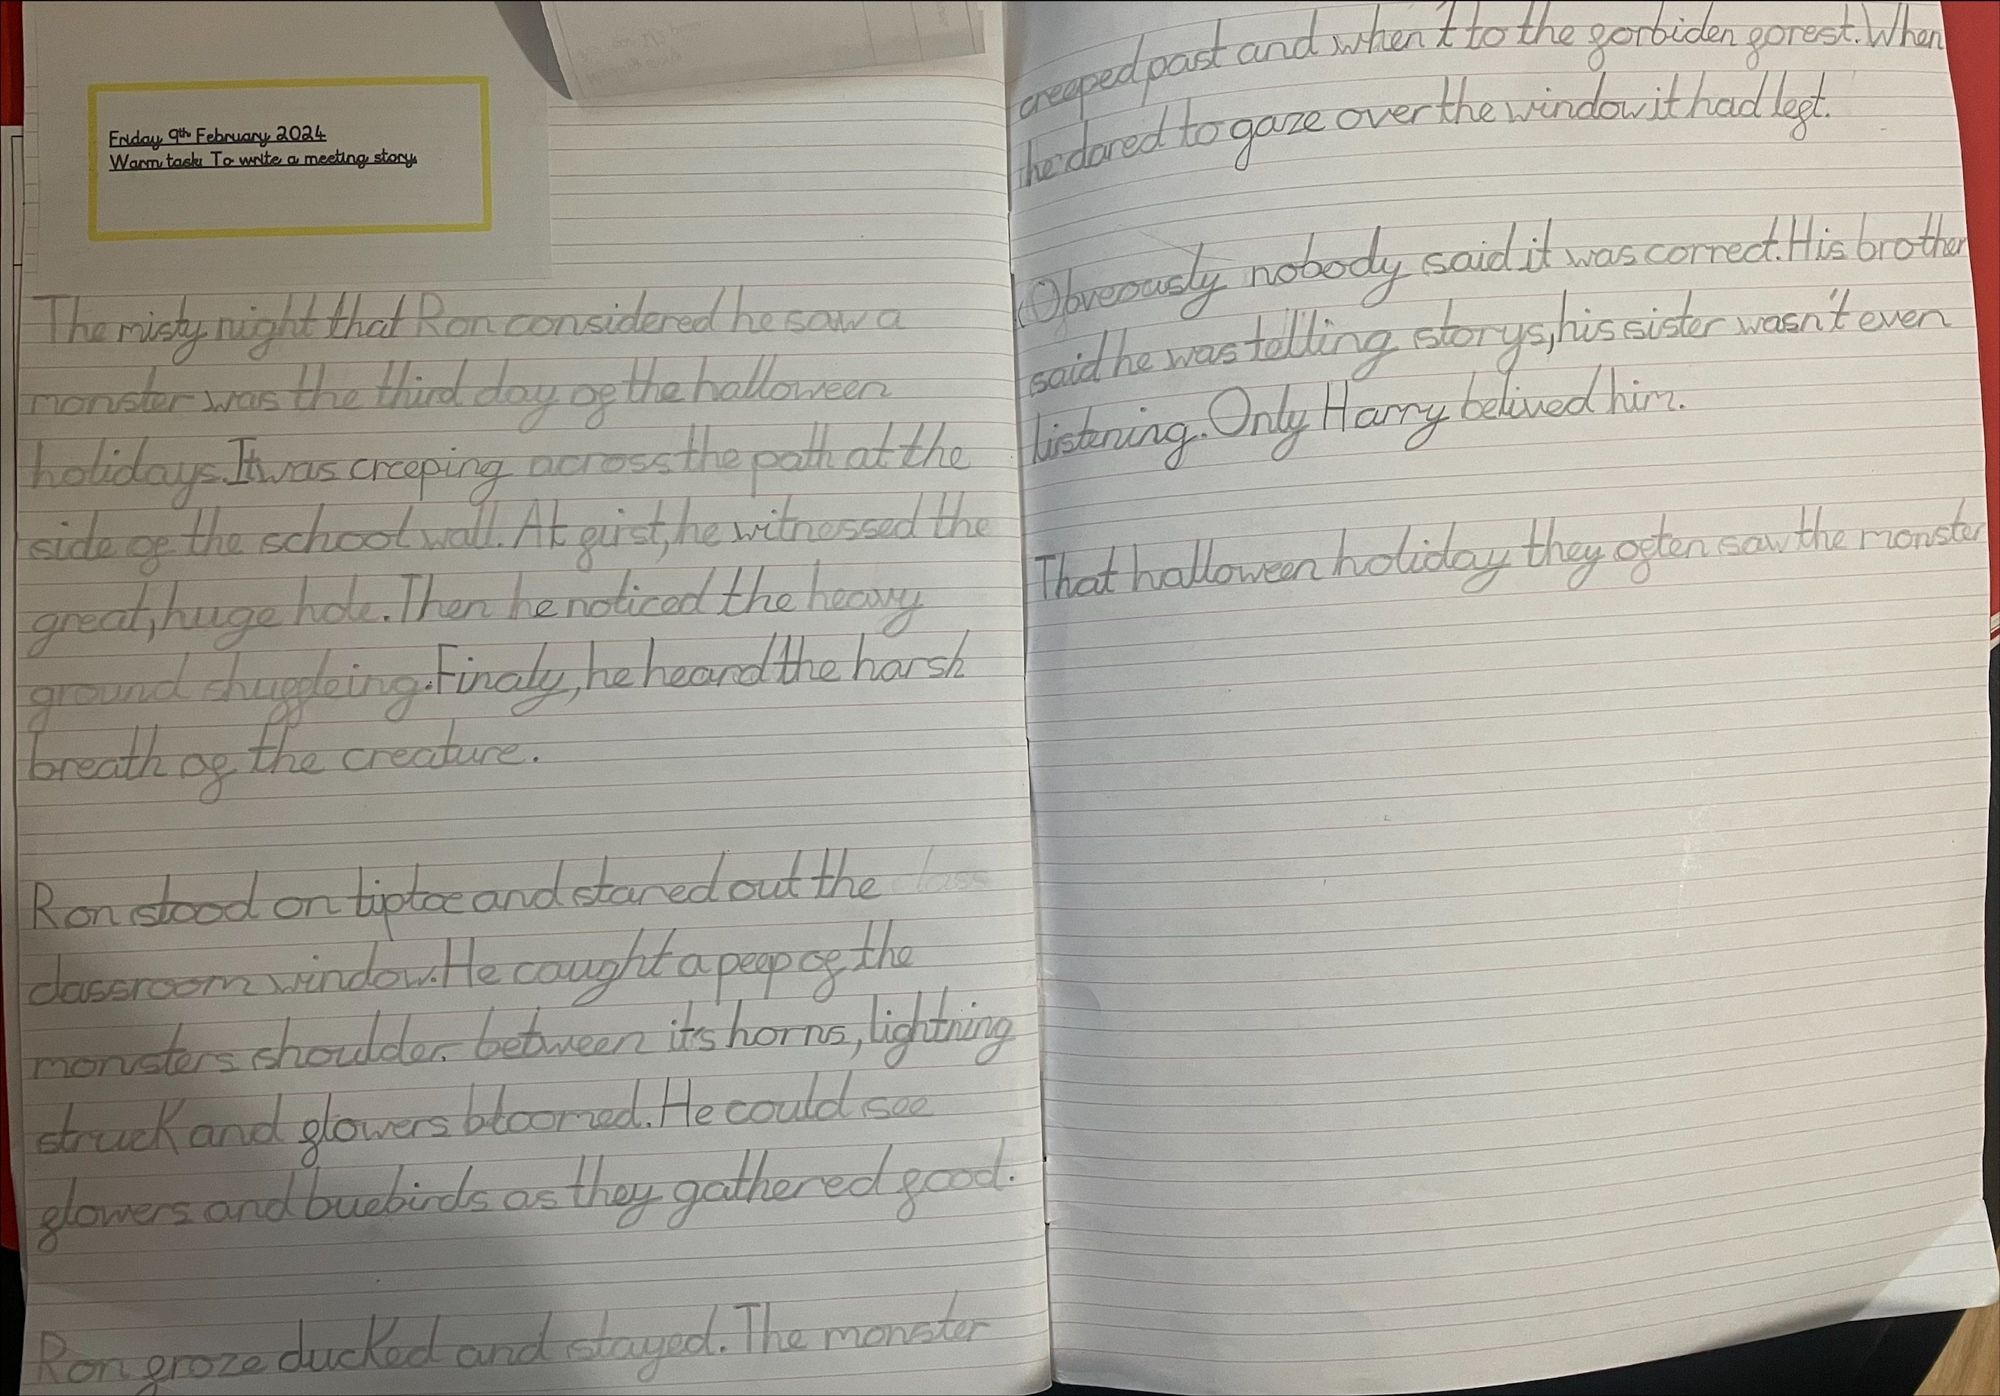 Friday 9th February 2024
Warm task: To write a meeting story.
The misty night that Ron considered he saw a
monster was the third day of the halloween
holidays. It was creeping across the path at the
side of the school wall. At first, he witnessed the
great, huge hole. Then he noticed the heavy
ground shuffleing. Finaly, he heard the harsh
breath of the creature.
Ron stood on tiptoe and stared out the
classroom window. He caught a peep of the
monsters shoulder. between it's horns, lightning
struck and flowers bloomed. He could see
flowers and buebirds as they gathered food.
Ron froze ducked and stayed. The monster
creeped past and when't to the forbiden forest. When
he dared to gaze over the window it had left.
Obveously nobody said it was correct. His brother
said he was telling storys, his sister wasn't even
listening. Only Harry belived him.
That halloween holiday they often saw the monster